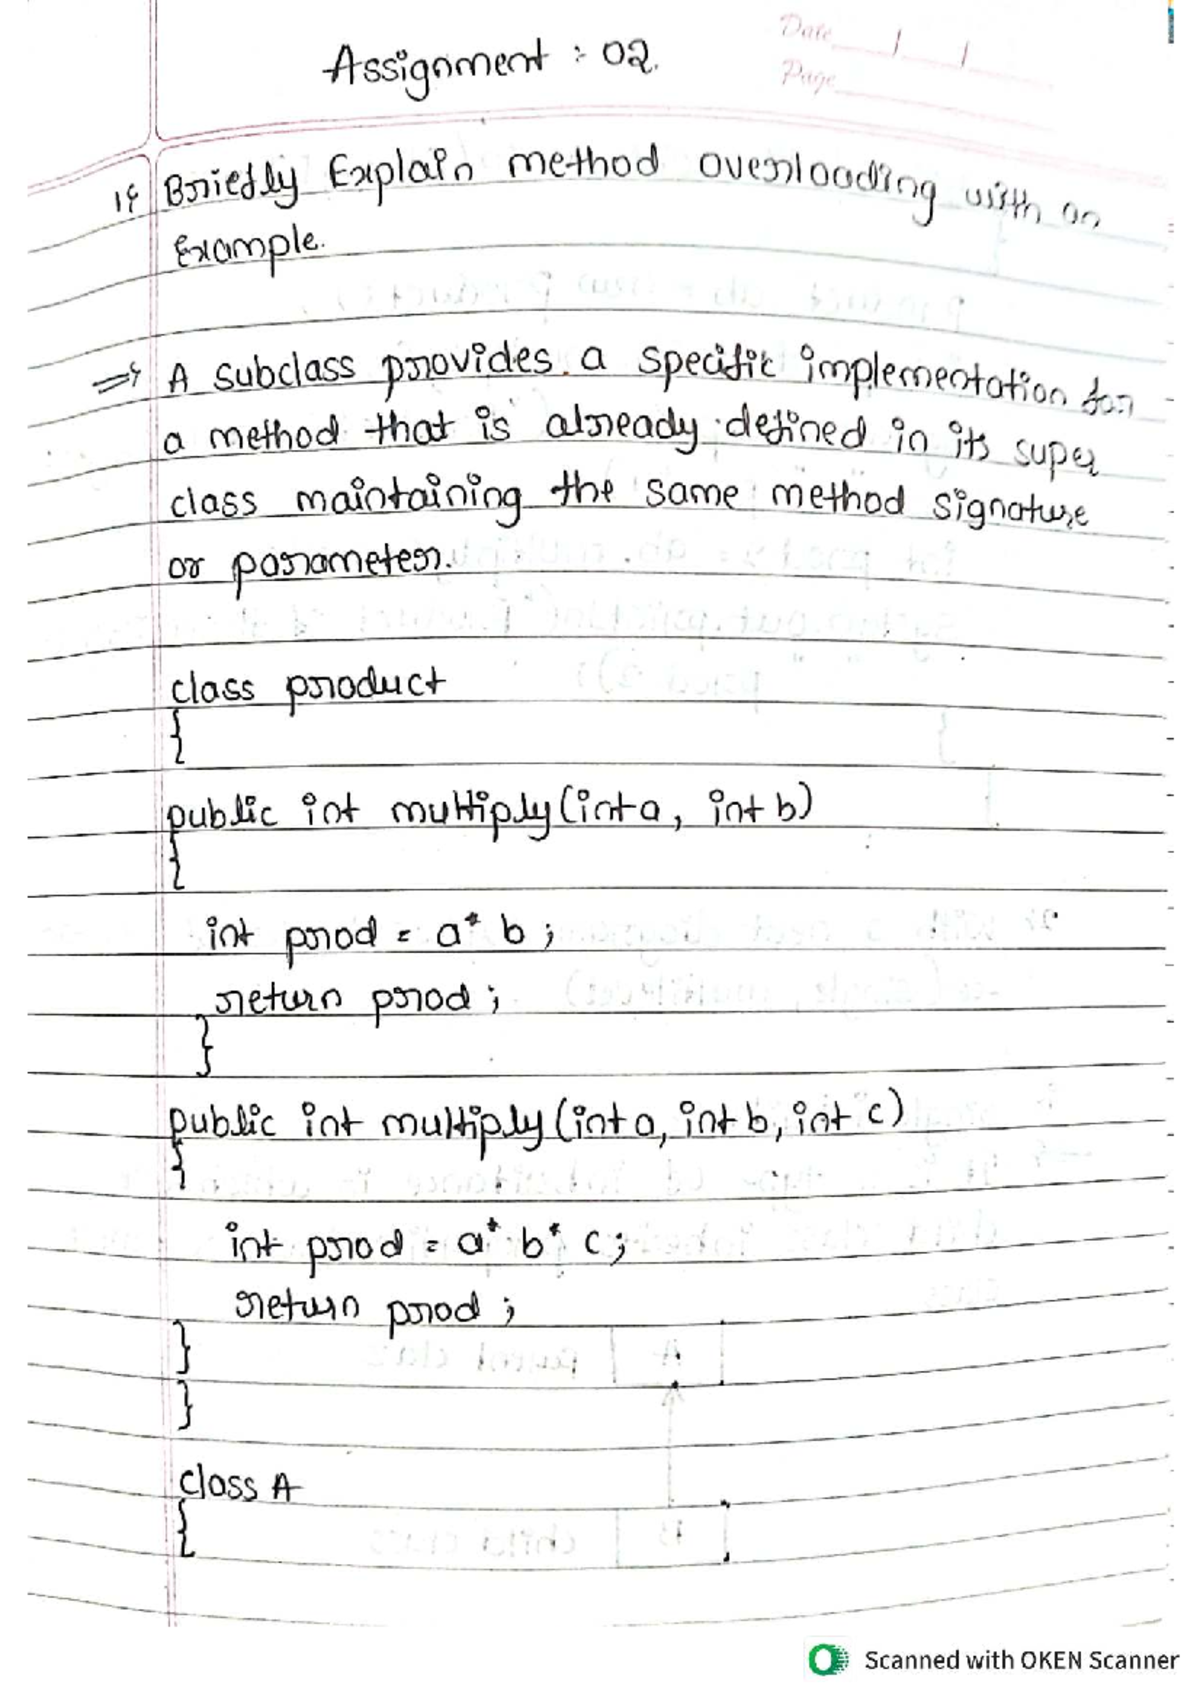 Date
Page
Assignment : 02.
1) Briefly Explain method overloading with an
Example.
=> A subclass provides a specific implementation for
a method that is already defined in its super
class maintaining the same method signature
or parameter.
class product
{
public int multiply(int a, int b)
{
int prod = a* b ;
return prod ;
}
public int multiply(int a, int b, int c)
{
int prod = a* b* c;
return prod ;
}
}
class A
{
Scanned with OKEN Scanner